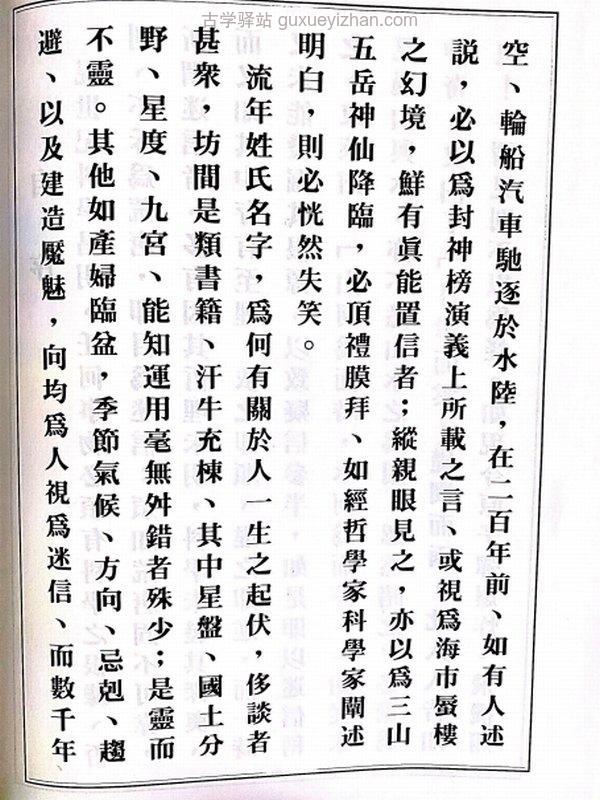 古学驿站 guxueyizhan.com
空、輪船汽車馳逐於水陸，在二百年前、如有人述
説，必以爲封神榜演義上所載之言、或視爲海市蜃樓
之幻境，鮮有眞能置信者；縱親眼見之，亦以爲三山
五岳神仙降臨，必頂禮膜拜、如經哲學家科學家闡述
明白，則必恍然失笑。
流年姓氏名字，爲何有關於人一生之起伏，侈談者
甚衆，坊間是類書籍、汗牛充棟、其中星盤、國土分
野、星度、九宮、能知運用毫無舛錯者殊少；是靈而
不靈。其他如產婦臨盆，季節氣候、方向、忌剋、趨
避、以及建造魘魅，向均爲人視爲迷信、而數千年